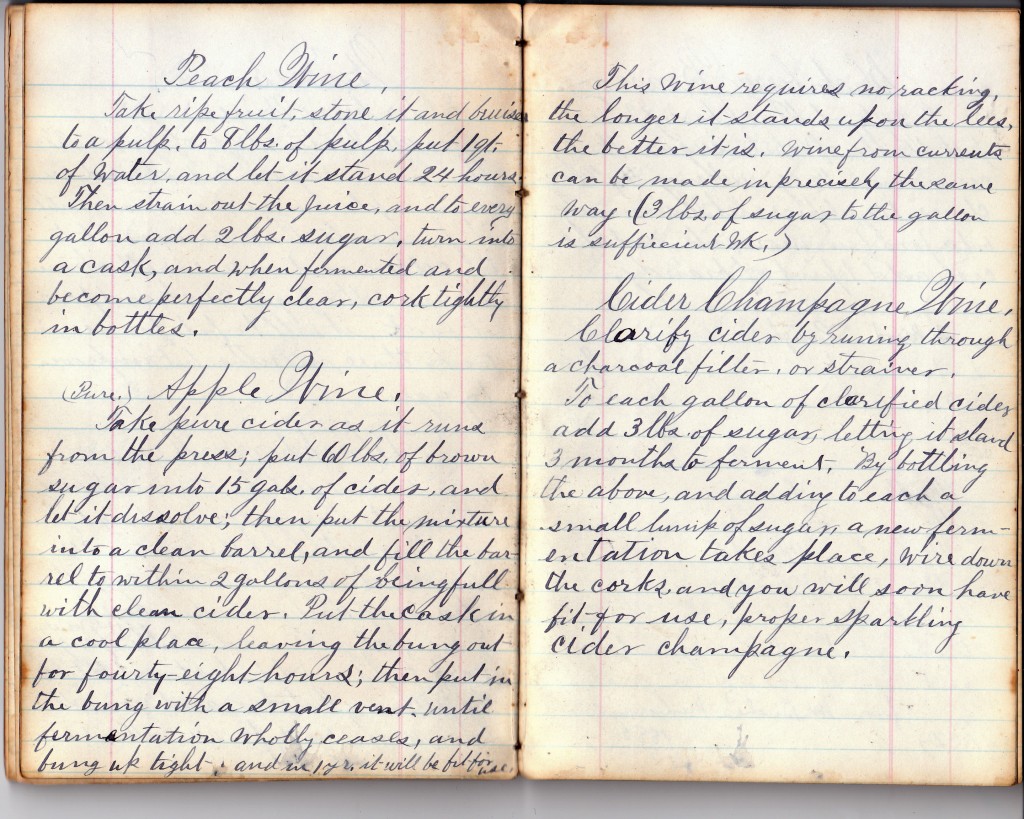 Peach Wine,
Take ripe fruit, stone it and bruise
to a pulp. to 8 lbs. of pulp, put 1 qt.
of water, and let it stand 24 hours.
Then strain out the juice, and to every
gallon add 2 lbs. sugar, turn into
a cask, and when fermented and
become perfectly clear, cork tightly
in bottles.
(Pure.) Apple Wine.
Take pure cider as it runs
from the press; put 60 lbs. of brown
sugar into 15 gals. of cider, and
let it dissolve; then put the mixture
into a clean barrel, and fill the bar
rel to within 2 gallons of being full
with clean cider. Put the cask in
a cool place, leaving the bung out
for fourty-eight hours; then put in
the bung with a small vent, until
fermentation wholly ceases, and
bung up tight. and in 1 yr. it will be fit for use.
This wine requires no racking,
the longer it stands upon the lees,
the better it is. wine from currents
can be made in precisely the same
way. (3 lbs. of sugar to the gallon
is suffiecient WK.)
Cider Champagne Wine.
Clarify cider by runing through
a charcoal filter, or strainer.
To each gallon of clarified cider
add 3 lbs. of sugar, letting it stand
3 months to ferment. By bottling
the above, and adding to each a
small lump of sugar, a new ferm-
entation takes place, wire down
the corks, and you will soon have
fit for use, proper sparkling
cider champagne.